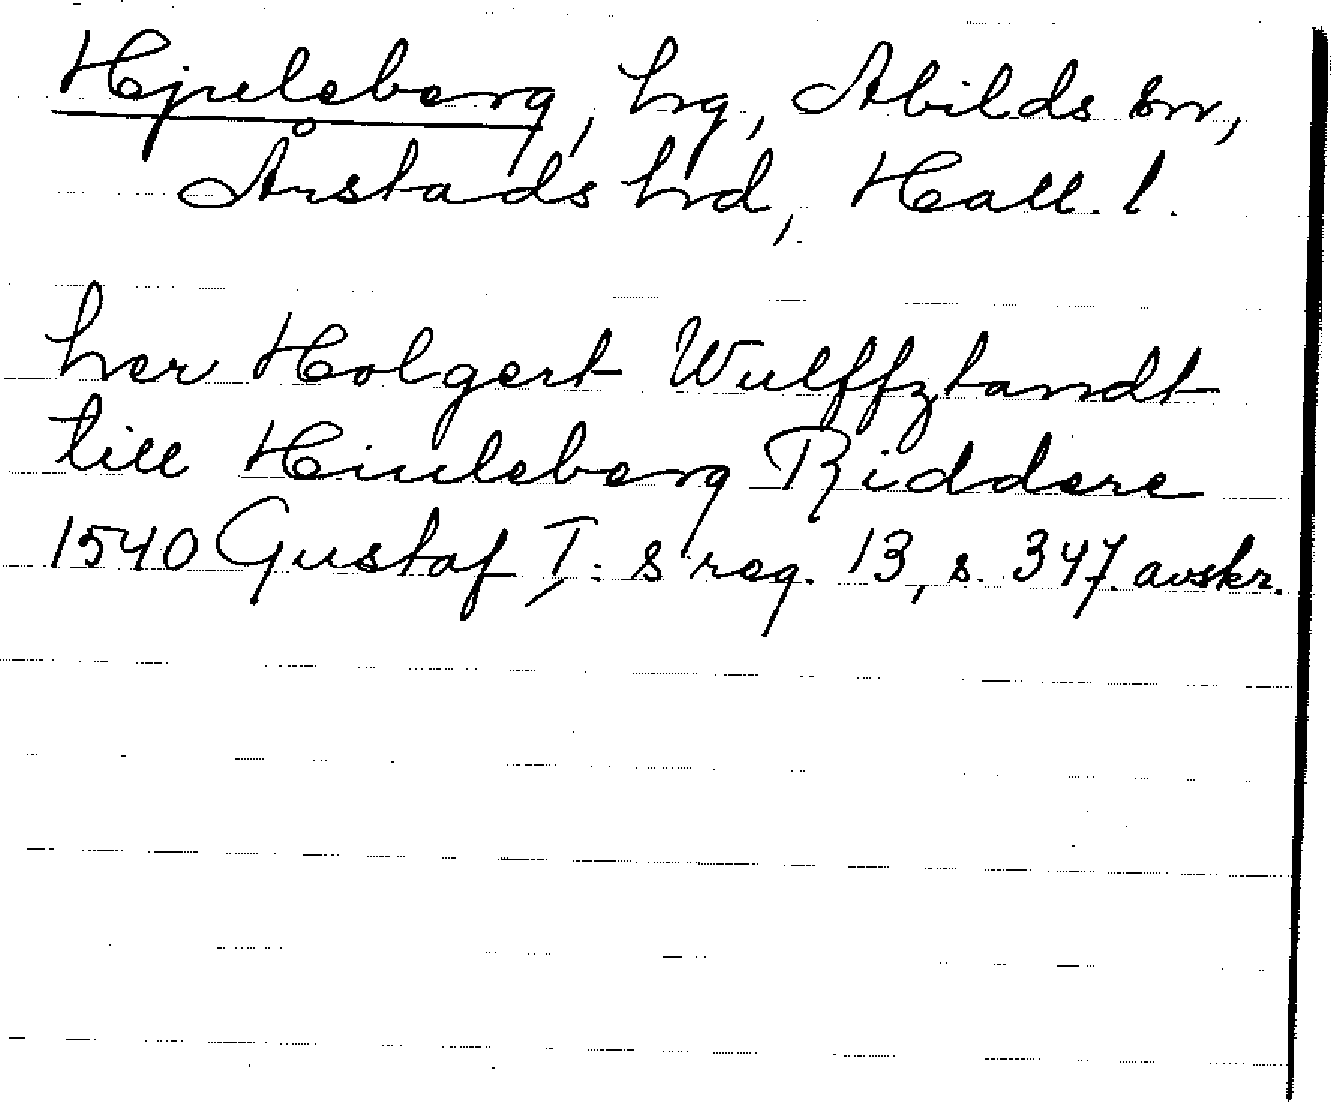 Hjuleberg, hrg, Abilds sn,
Årstads hrd, Hall. l.
her Holgert Wulffztandt
till Hiuleberg Riddere
1540 Gustaf I: s reg. 13, s. 347. avskr.